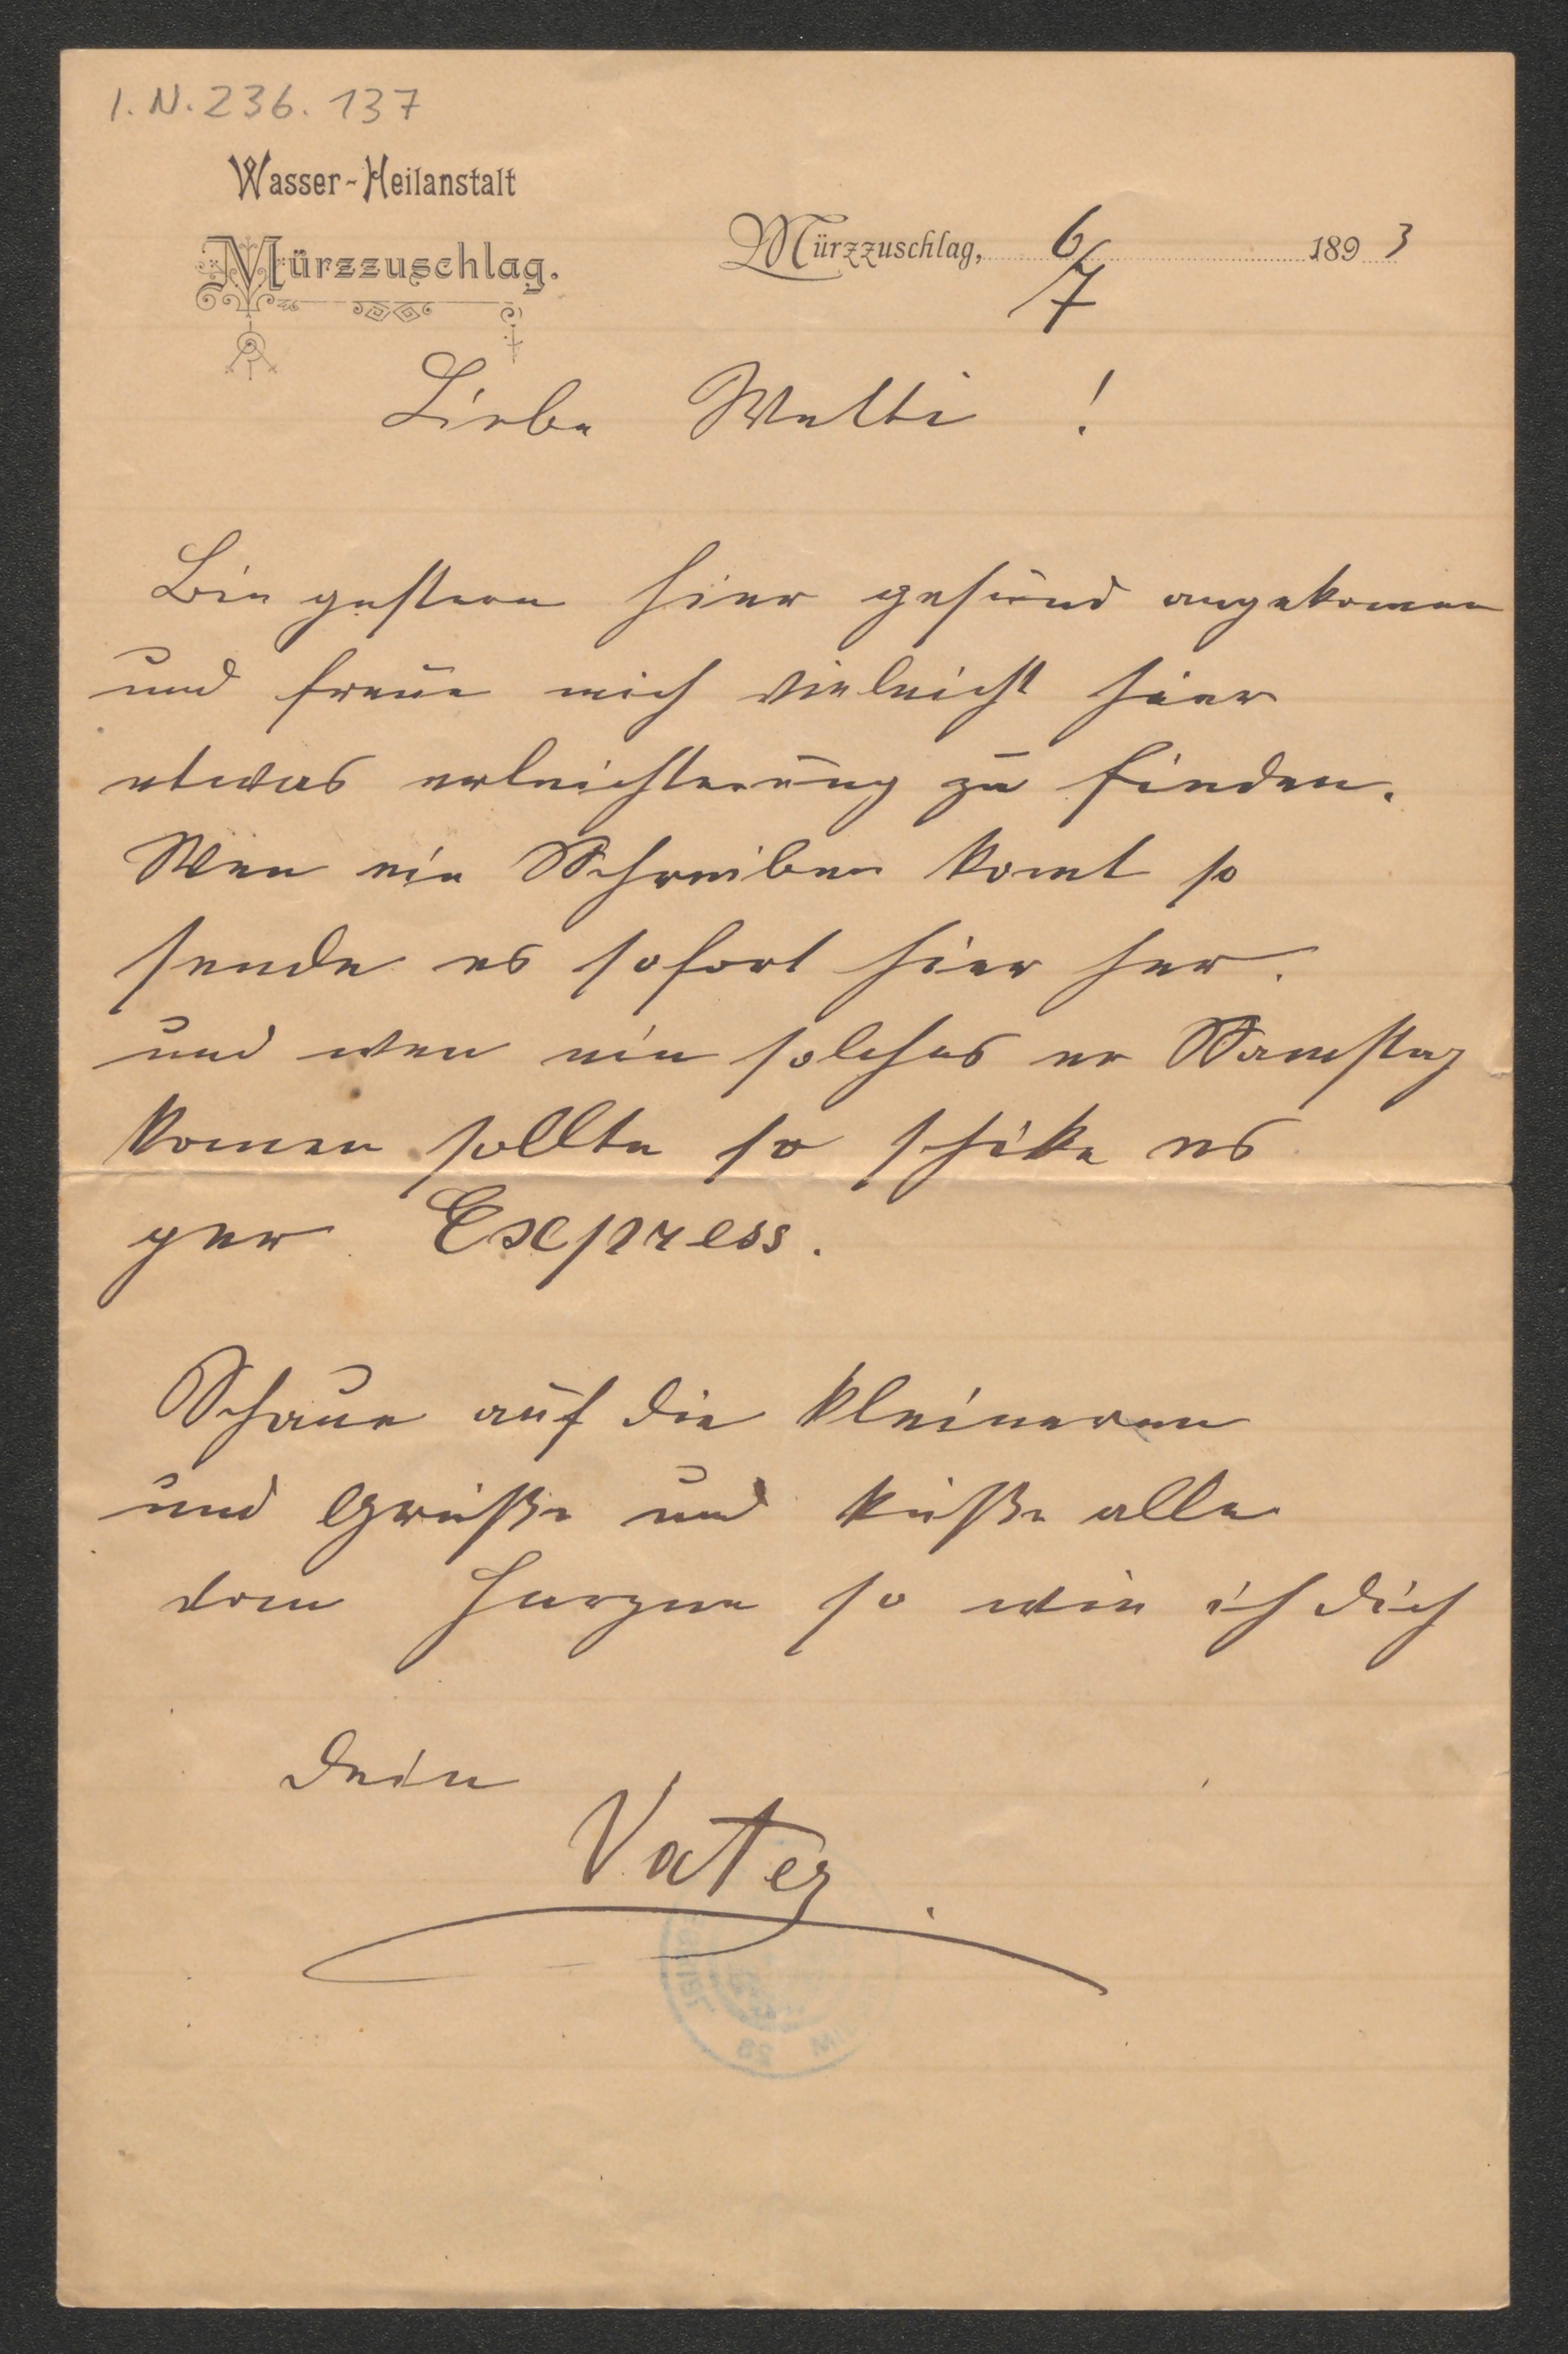 I.N. 236.137
Wasser-Heilanstalt
Mürzzuschlag.
Mürzzuschlag, 6/7 1893
Liebe Metti !
Bin gestern hier gesund angekomen
und freue mich vieleicht hier
etwas erleichterung zu finden.
Wen ein Schreiben komt so
sende es sofort hier her.
und wen ein solches er Samstag
komen sollte so schike es
per Express.
Schaue auf die kleineren
und Grüße und küße alle
vom Herzen so wie ich dich
dein
Vater.